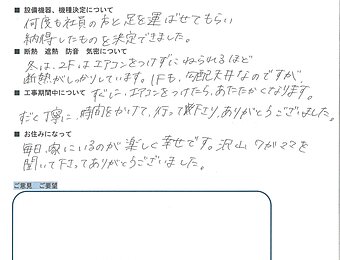 ■ 設備機器、機種決定について
何度も社員の方と足を運ばせてもらい
納得したものを決定できました。
■ 断熱 遮熱 防音 気密について
冬は、2Fはエアコンをつけずにねられるほど
断熱がしっかりしています。1Fも、勾配天井なのですが、
■ 工事期間中について すぐに、エアコンをつけたら、あたたかくなります。
すごく丁寧に、時間をかけて、行って頂下さり、ありがとうございました。
■ お住みになって
毎日、家にいるのが楽しく幸せです。沢山ワガママを
聞いて下さってありがとうございました。
ご意見 ご要望